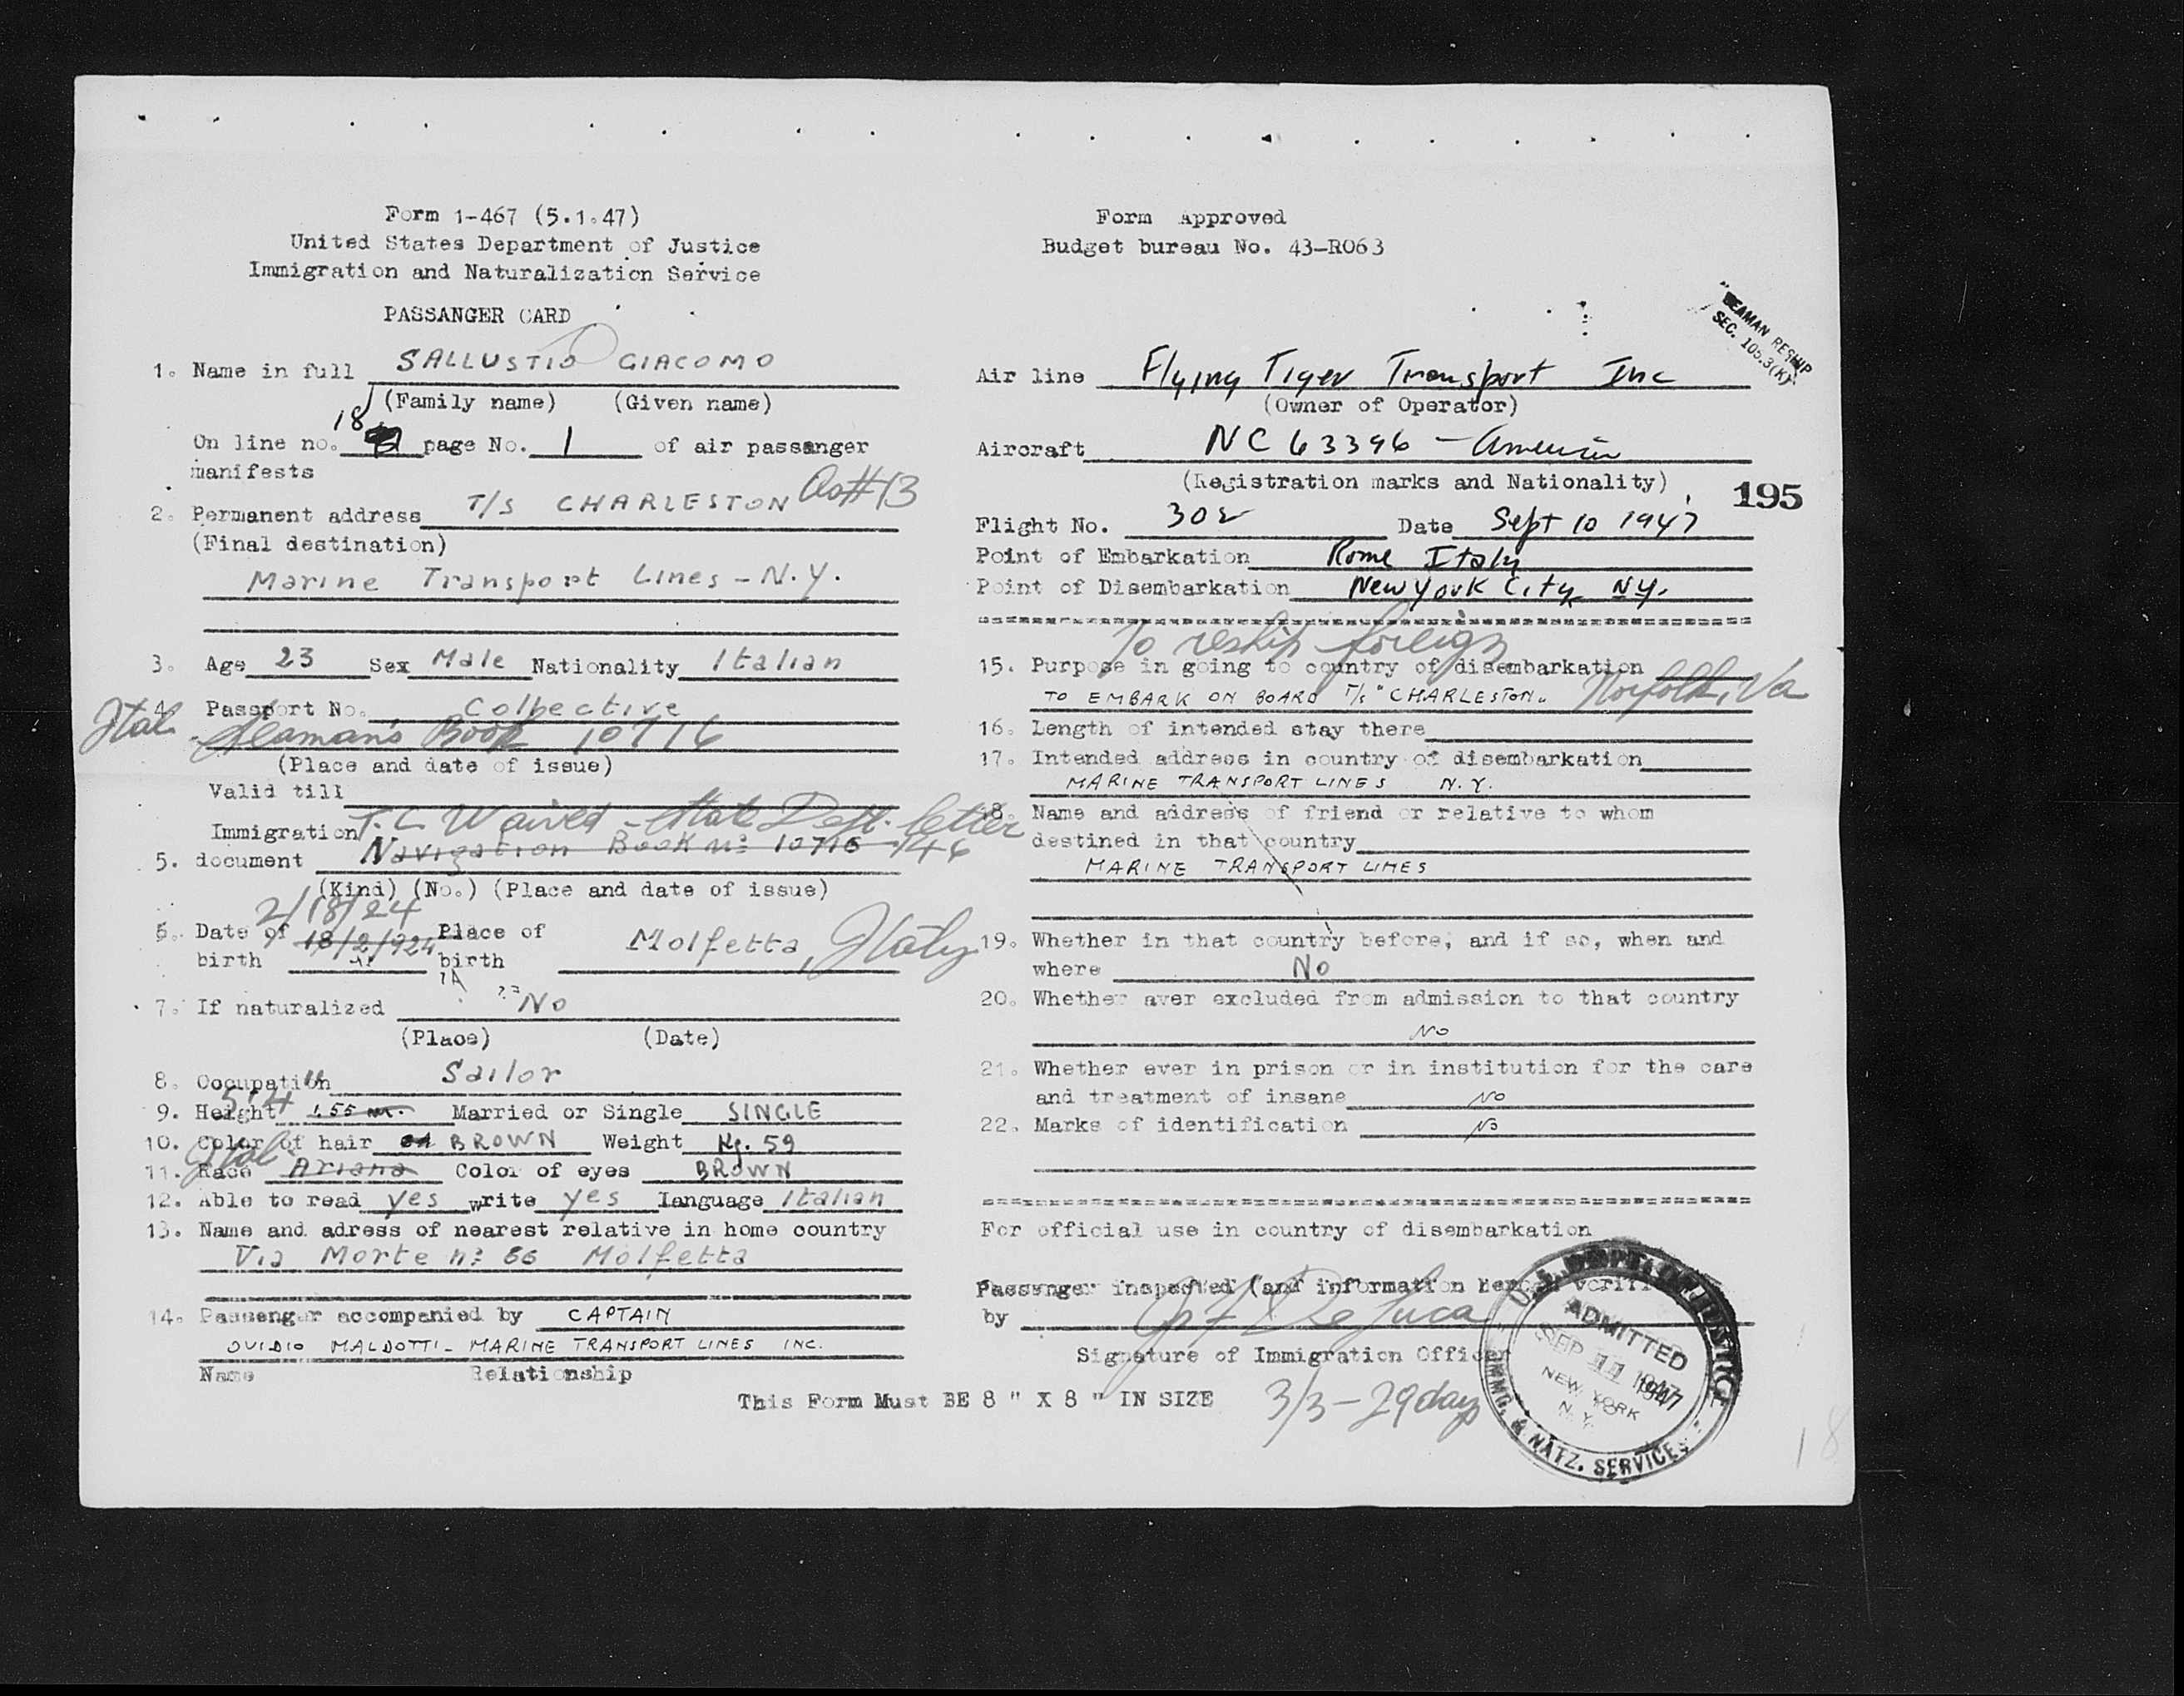 Form 1-467 (5.1.47)
United States Department of Justice
Immigration and Naturalization Service
PASSANGER CARD
1. Name in full SALLUSTIO GIACOMO
(Family name) (Given name)
18
On line no. page No. 1 of air passanger
manifests
2. Permanent address T/S CHARLESTON #13
(Final destination)
Marine Transport Lines - N.Y.
3. Age 23 Sex Male Nationality Italian
4. Passport No. Collective
Ital. Seaman's Book 10716
(Place and date of issue)
Valid till
T.C. Waived - State Dept. letter
Immigration
5. document Navigation Book nº 10716 /46
(Kind) (No.) (Place and date of issue)
2/18/24
6. Date of 18/2/924 Place of Molfetta, Italy
birth birth
7. If naturalized No
(Place) (Date)
8. Occupation Sailor
5'4
9. Height 1.55 m. Married or Single SINGLE
10. Color of hair BROWN Weight Kg. 59
Ital
11. Race Ariana Color of eyes BROWN
12. Able to read yes write yes language Italian
13. Name and adress of nearest relative in home country
Via Morte nº 66 Molfetta
14. Passenger accompanied by CAPTAIN
OVIDIO MALDOTTI - MARINE TRANSPORT LINES INC.
Name Relationship
This Form Must BE 8 " X 8 " IN SIZE
Form Approved
Budget bureau No. 43-R063
SEAMAN RESHIP
SEC. 105.3(K)
Air line Flying Tiger Transport Inc
(Owner of Operator)
Aircraft NC 63396 - American
(Registration marks and Nationality)
195
Flight No. 302 Date Sept 10 1947
Point of Embarkation Rome Italy
Point of Disembarkation New York City N.Y.
To reship foreign
15. Purpose in going to country of disembarkation
TO EMBARK ON BOARD T/s "CHARLESTON" Norfolk, Va
16. Length of intended stay there
17. Intended address in country of disembarkation
MARINE TRANSPORT LINES N.Y.
18. Name and address of friend or relative to whom
destined in that country
MARINE TRANSPORT LINES
19. Whether in that country before, and if so, when and
where No
20. Whether aver excluded from admission to that country
No
21. Whether ever in prison or in institution for the care
and treatment of insane No
22. Marks of identification No
For official use in country of disembarkation
Passenger inspected (and information hereon verifi
by De Luca
Signature of Immigration Officer
3/3 - 29 days
U.S. DEPT. OF JUSTICE
ADMITTED
SEP 11 1947
NEW YORK
N.Y.
IMMG. & NATZ. SERVICE
18